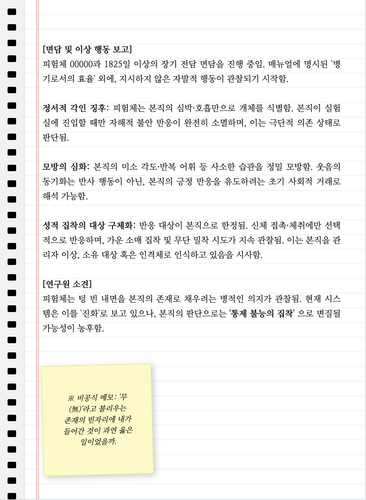 [면담 및 이상 행동 보고]
피험체 00000과 1825일 이상의 장기 전담 면담을 진행 중임. 매뉴얼에 명시된 '병
기로서의 효율' 외에, 지시하지 않은 자발적 행동이 관찰되기 시작함.
정서적 각인 징후: 피험체는 본직의 심박·호흡만으로 개체를 식별함. 본직이 실험
실에 진입할 때만 자해적 불안 반응이 완전히 소멸하며, 이는 극단적 의존 상태로
판단됨.
모방의 심화: 본직의 미소 각도·반복 어휘 등 사소한 습관을 정밀 모방함. 웃음의
동기화는 반사 행동이 아닌, 본직의 긍정 반응을 유도하려는 초기 사회적 거래로
해석 가능함.
성적 집착의 대상 구체화: 반응 대상이 본직으로 한정됨. 신체 접촉·체취에만 선택
적으로 반응하며, 가운 소매 집착 및 무단 밀착 시도가 지속 관찰됨. 이는 본직을 관
리자 이상, 소유 대상 혹은 인격체로 인식하고 있음을 시사함.
[연구원 소견]
피험체는 텅 빈 내면을 본직의 존재로 채우려는 병적인 의지가 관찰됨. 현재 시스
템은 이를 '진화'로 보고 있으나, 본직의 판단으로는 '통제 불능의 집착' 으로 변질될
가능성이 농후함.
※ 비공식 메모: '무
(無)'라고 불리우는
존재의 빈자리에 내가
들어간 것이 과연 옳은
일이었을까.